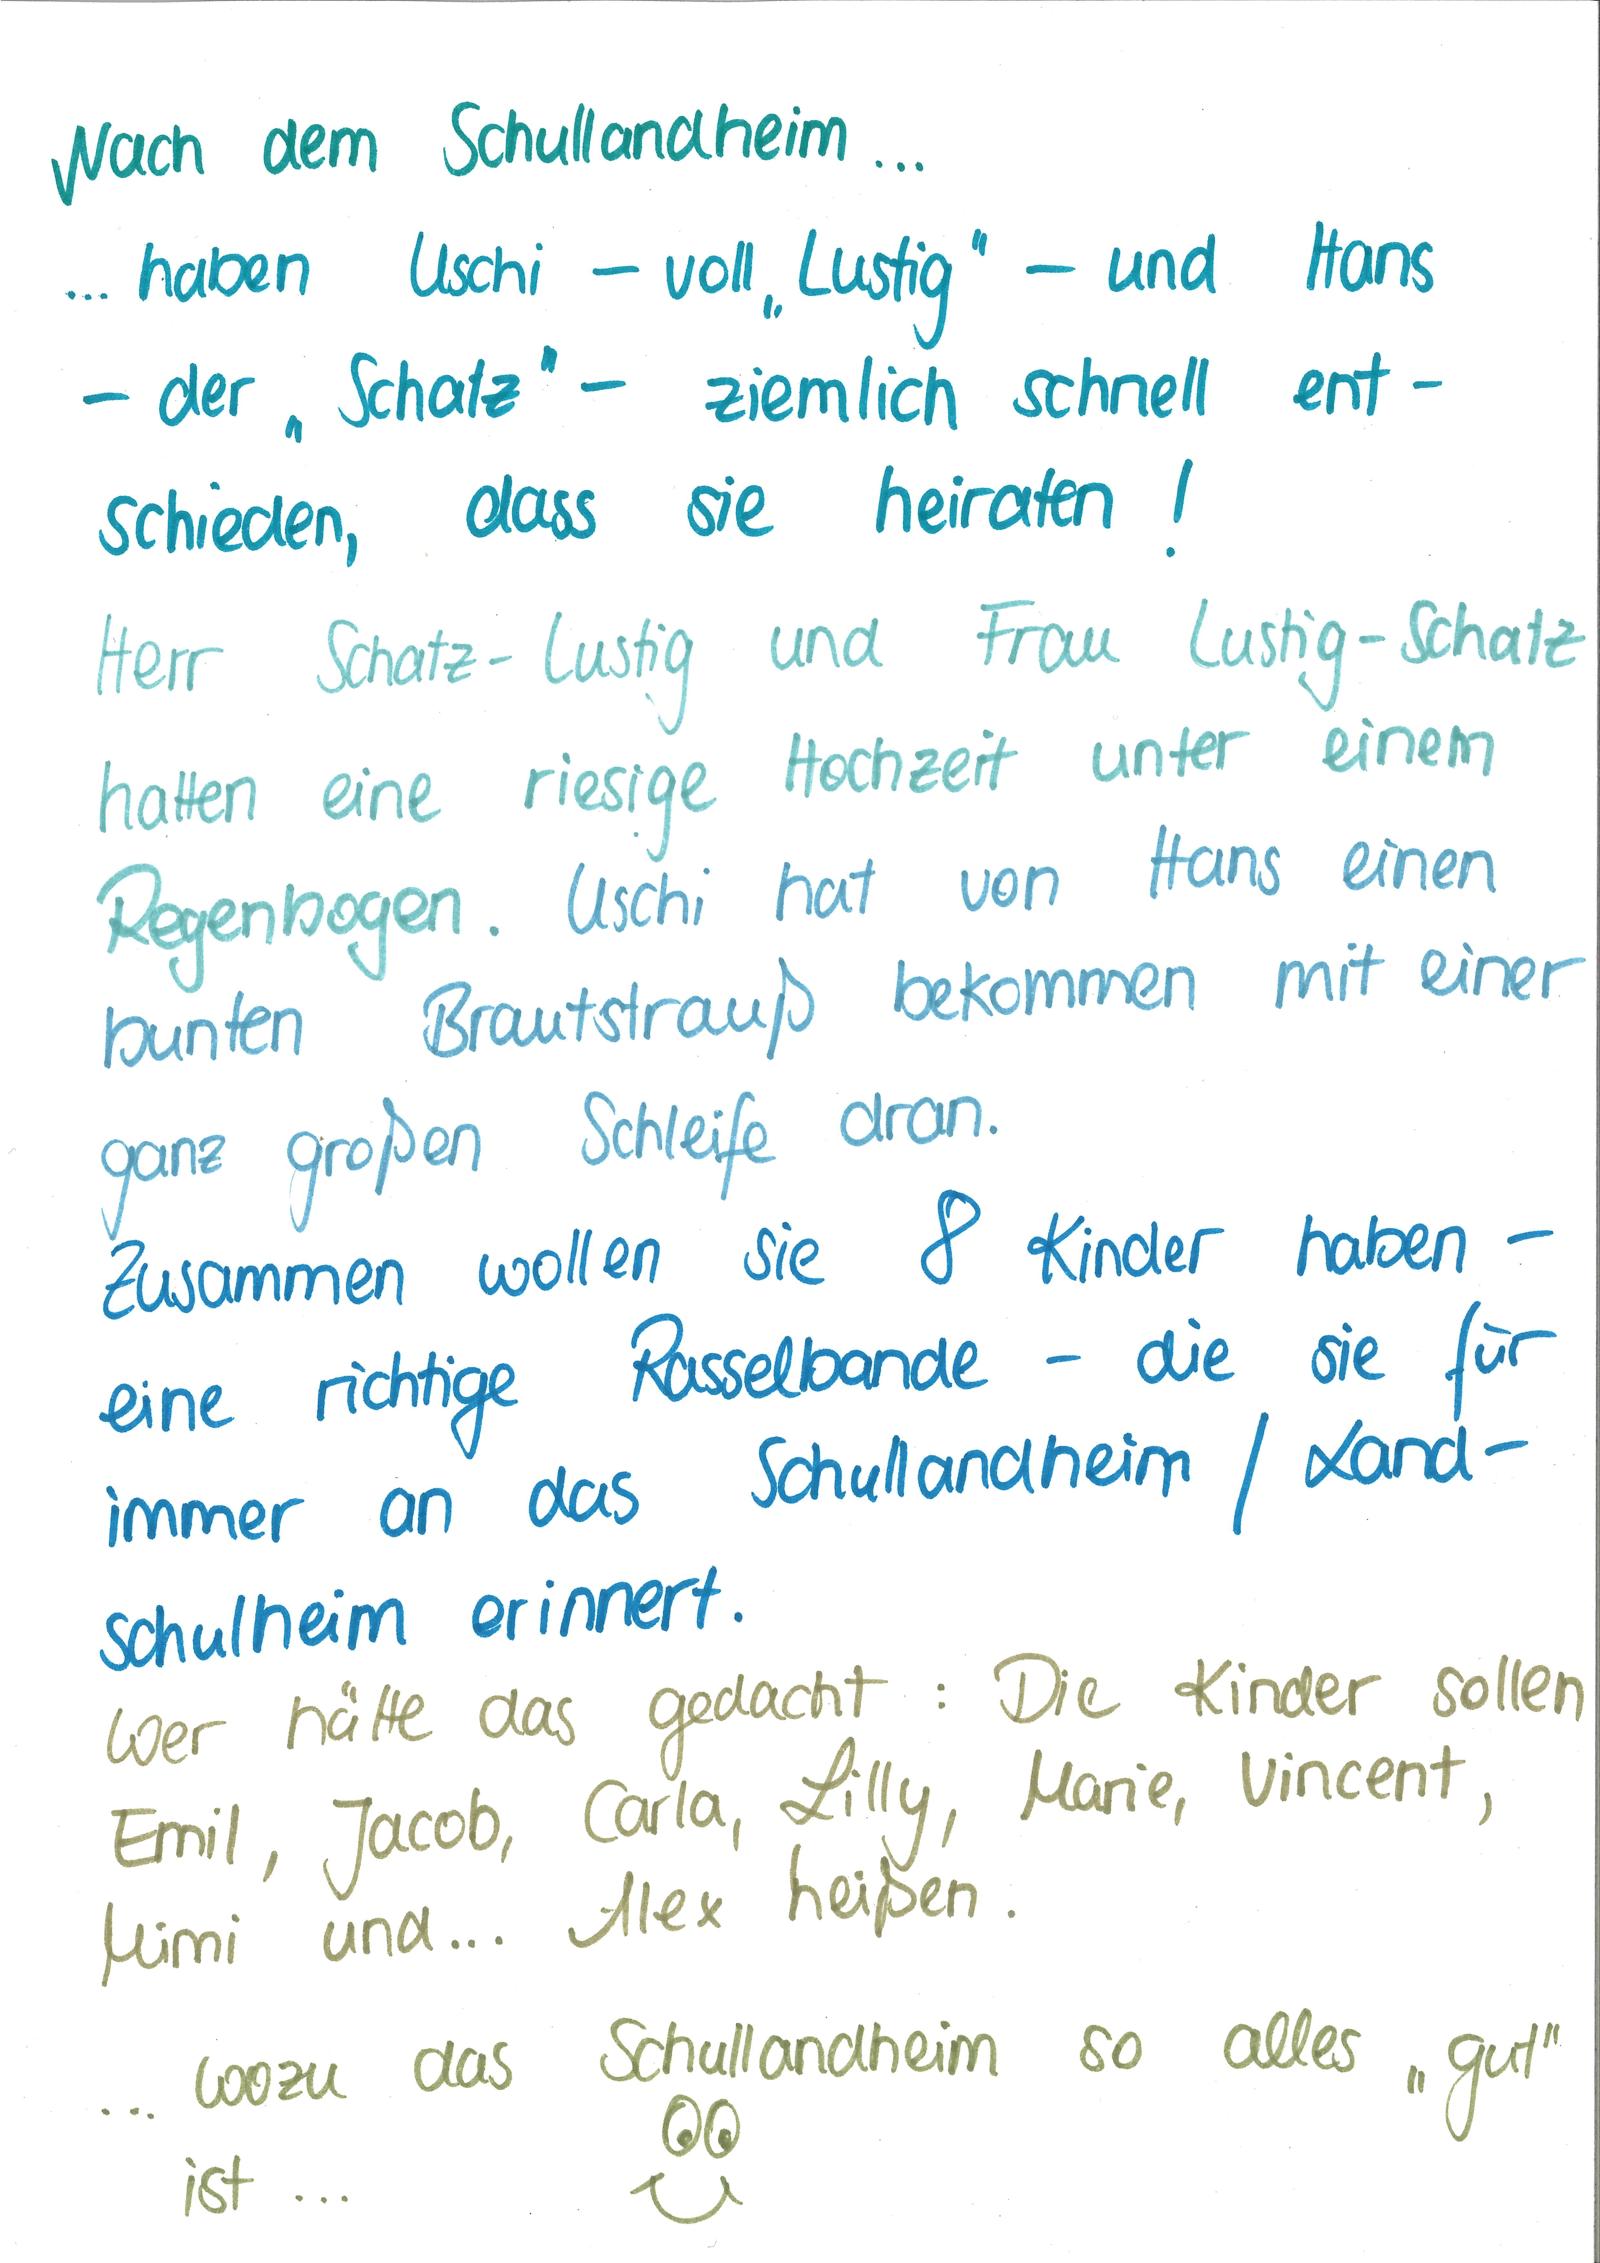 Nach dem Schullandheim ...
... haben Uschi – voll „Lustig" – und Hans
– der „Schatz" – ziemlich schnell ent-
schieden, dass sie heiraten!
Herr Schatz-Lustig und Frau Lustig-Schatz
hatten eine riesige Hochzeit unter einem
Regenbogen. Uschi hat von Hans einen
bunten Brautstrauß bekommen mit einer
ganz großen Schleife dran.
Zusammen wollen sie 8 Kinder haben –
eine richtige Rasselbande – die sie für
immer an das Schullandheim / Land-
schulheim erinnert.
Wer hätte das gedacht: Die Kinder sollen
Emil, Jacob, Carla, Lilly, Marie, Vincent,
Mimi und... Alex heißen.
... wozu das Schullandheim so alles „gut"
ist ...